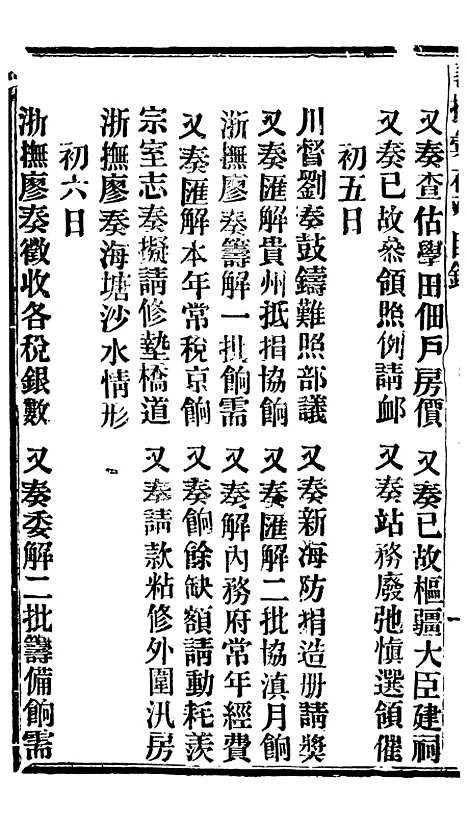 又奏查估學田佃戶房價　又奏已故樞疆大臣建祠
又奏已故叅領照例請邺　又奏站務廢弛慎選領催
初五日
川督劉奏鼓鑄難照部議　又奏新海防捐造册請獎
又奏匯解貴州抵捐協餉　又奏匯解二批協滇月餉
浙撫廖奏籌解一批餉需　又奏解內務府常年經費
又奏匯解本年常稅京餉　又奏餉餘缺額請動耗羨
宗室志奏擬請修墊橋道　又奏請款粘修外圍汛房
浙撫廖奏海塘沙水情形
初六日
浙撫廖奏徵收各稅銀數　又奏委解二批籌備餉需